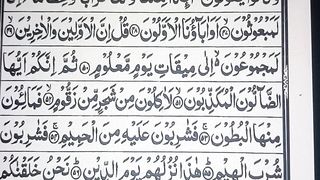 لَمَبْعُوْثُوْنَ ﴿۴۷﴾ اَوَاٰبَآؤُنَا الْاَوَّلُوْنَ ﴿۴۸﴾ قُلْ اِنَّ الْاَوَّلِيْنَ وَالْاٰخِرِيْنَ ﴿۴۹﴾
لَمَجْمُوْعُوْنَ اِلٰى مِيْقَاتِ يَوْمٍ مَّعْلُوْمٍ ﴿۵۰﴾ ثُمَّ اِنَّكُمْ اَيُّهَا
الضَّآلُّوْنَ الْمُكَذِّبُوْنَ ﴿۵۱﴾ لَاٰكِلُوْنَ مِنْ شَجَرٍ مِّنْ زَقُّوْمٍ ﴿۵۲﴾ فَمَالِـُٔوْنَ
مِنْهَا الْبُطُوْنَ ﴿۵۳﴾ فَشٰرِبُوْنَ عَلَيْهِ مِنَ الْحَمِيْمِ ﴿۵۴﴾ فَشٰرِبُوْنَ
شُرْبَ الْهِيْمِ ﴿۵۵﴾ هٰذَا نُزُلُهُمْ يَوْمَ الدِّيْنِ ﴿۵۶﴾ نَحْنُ خَلَقْنٰكُمْ